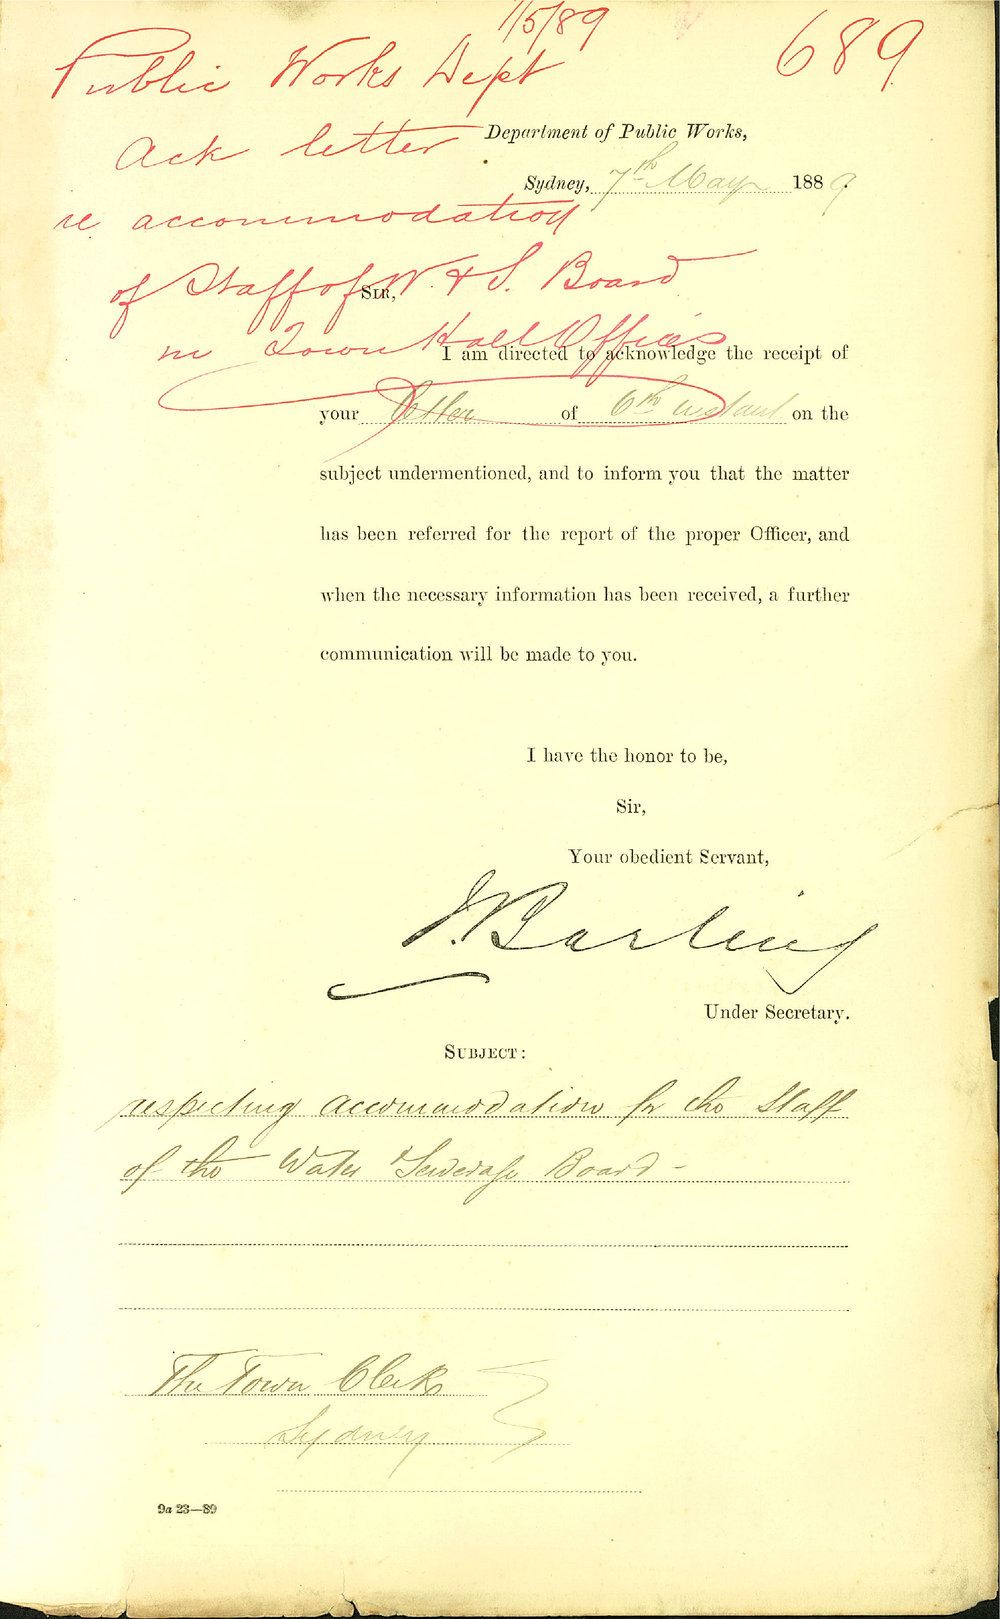 1/5/89
689
Public Works Dept
Ack letter
re accommodation
of Staff of W. & S. Board
in Town Hall Offices
Department of Public Works,
Sydney, 7th May 1889.
SIR,
I am directed to acknowledge the receipt of
your letter of 6th instant on the
subject undermentioned, and to inform you that the matter
has been referred for the report of the proper Officer, and
when the necessary information has been received, a further
communication will be made to you.
I have the honor to be,
Sir,
Your obedient Servant,
J. Barling
Under Secretary.
SUBJECT:
respecting accommodation for the Staff
of the Water & Sewerage Board -
The Town Clerk
Sydney
9a 23—89